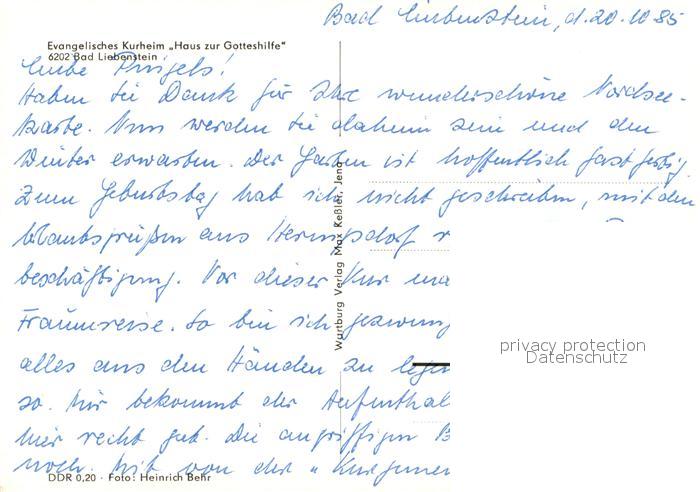 Bad Liebenstein, d. 20.10.85
Evangelisches Kurheim „Haus zur Gotteshilfe"
6202 Bad Liebenstein
Liebe
Haben Sie Dank für Ihre wunderschöne Nordsee-
karte. Nun werden Sie daheim sein und den
Winter erwarten. Der Garten ist hoffentlich fast fertig.
Zum Geburtstag hab ich nicht geschrieben, mit den
Urlaubsgrüßen aus Heringsdorf
beschäftigung. Vor dieser Kur
So bin ich
alles aus den Händen zu legen
so. Mir bekommt der
hier recht gut. Die angriffigen B
noch. von der „
Wartburg Verlag Max Keßler, Jena
privacy protection
Datenschutz
DDR 0,20 · Foto: Heinrich Behr